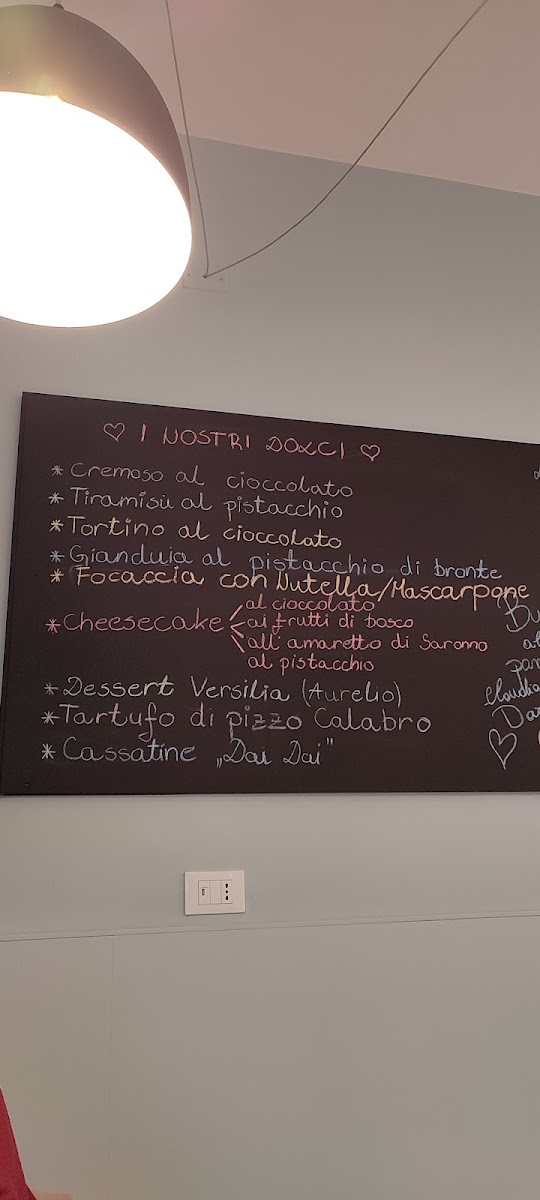 ♡ I NOSTRI DOLCI ♡
* Cremoso al cioccolato
* Tiramisù al pistacchio
* Tortino al cioccolato
* Gianduia al pistacchio di bronte
* Focaccia con Nutella/Mascarpone
* Cheesecake
al cioccolato
ai frutti di bosco
all'amaretto di Saronno
al pistacchio
* Dessert Versilia (Aurelio)
* Tartufo di pizzo Calabro
* Cassatine „Dai Dai"